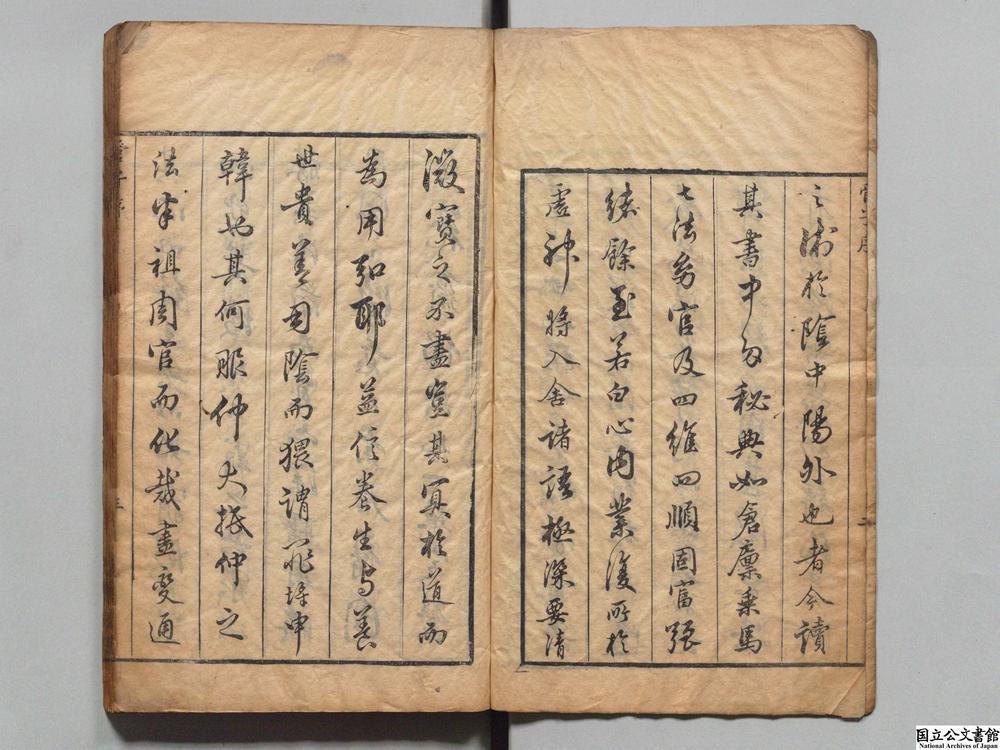 之術於陰中陽外也者今讀
其書中多秘典如倉廩乘馬
七法幼官及四維四順固富強
緒餘至若白心內業復所於
虛神將入舍諸語極深要清
微寶之不盡宣其冥於道而
為用弘耶益信養生与養
世貴善用陰而猥謂非埓申
韓也其何服仲大抵仲之
法率祖周官而化裁盡變通
三
国立公文書館
National Archives of Japan